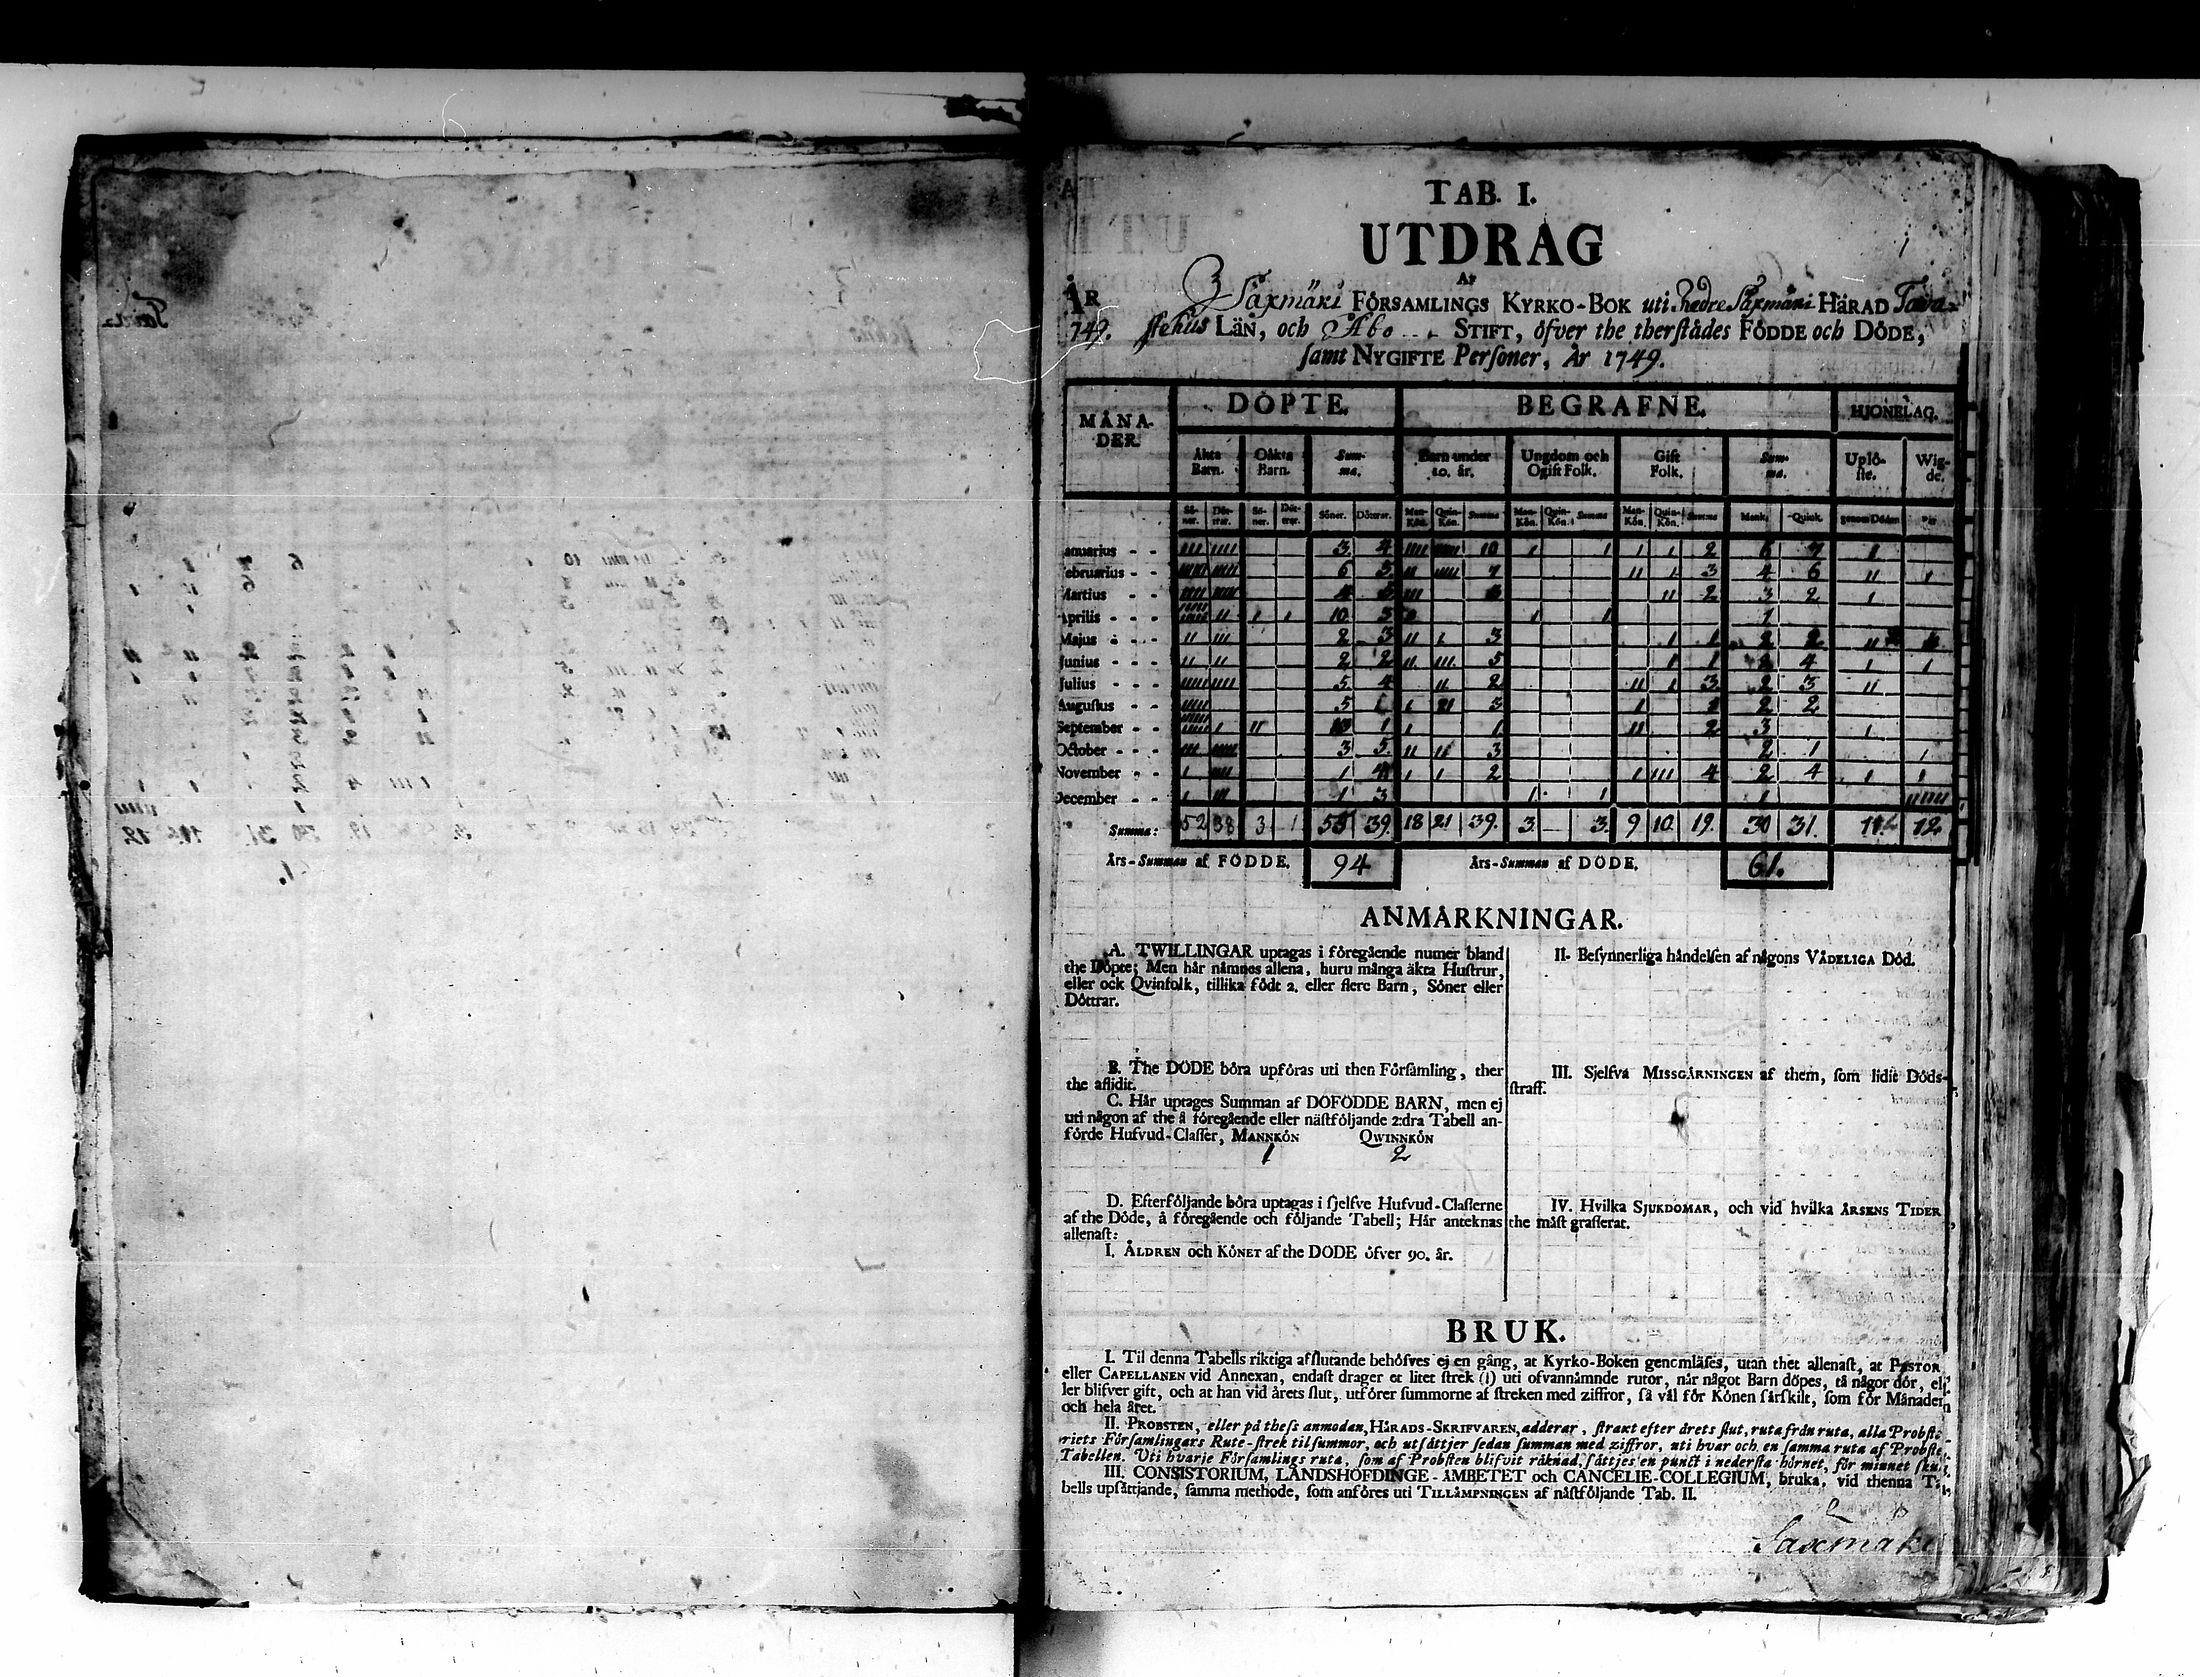 TAB. I.
UTDRAG
AF
ÅR 1749. Säxmäki FÖRSAMLINGS KYRKO-BOK uti Nedre Säxmäki HÄRAD Tava=
stehus LÄN, och Åbo STIFT, öfver the therstädes FÖDDE och DÖDE,
samt NYGIFTE Personer, År 1749.
MÅNA-DER. DÖPTE. BEGRAFNE. HJONELAG.
Äkta Barn. Oäkta Barn. Sum-ma. Barn under 10. år. Ungdom och Ogift Folk. Gift Folk. Sum-ma. Uplö-ste. Wig-de.
Sö-ner. Dött-rar. Sö-ner. Dött-rar. Söner. Döttrar. Man-Kön. Quin-Kön. Summa Man-Kön. Quin-Kön. Summa Man-Kön. Quin-Kön. Summa Mank. Quink. genom Döden Par
Januarius - - III IIII 3 4 10 1 1 1 1 2 6 7 1
Februarius - - 6 5 II 7 II 1 3 4 6 II 1
Martius - - III II 2 3 2 1
Aprilis - - - II 1 1 10 1 1 1
Majus - - - II III 2 3 II 1 3 1 1 2 2 II
Junius - - - II II 2 2 II III 5 1 1 4 1 1
Julius - - - IIIII IIII 5 4 II 2 II 1 3 2 3 II
Augustus - - 5 1 3 1 2 2
September - - 1 II 1 1 1 II 2 3 1
October - - - III IIIII 3 5 II II 3 2 1 1
November - - 1 IIII 1 4 1 1 2 1 III 4 2 4 1 1
December - - 1 III 1 3 1 1 1
Summa: 52 38 3 1 55 39. 18 21 39. 3. — 3. 9 10. 19. 30 31. 12
Års-Summan af FÖDDE. 94 Års-Summan af DÖDE. 61.
ANMÄRKNINGAR.
A. TWILLINGAR uptagas i föregående numer bland
the Döpte; Men här nämnes allena, huru många äkta Hustrur,
eller ock Qvinfolk, tillika födt 2. eller flere Barn, Söner eller
Döttrar.
B. The DÖDE böra upföras uti then Församling, ther
the aflidit.
C. Här uptages Summan af DÖFÖDDE BARN, men ej
uti någon af the å föregående eller nästföljande 2:dra Tabell an-
förde Hufvud-Classer, MANNKÖN QWINNKÖN
1 2
D. Efterföljande böra uptagas i sjelfve Hufvud-Classerne
af the Döde, å föregående och följande Tabell; Här anteknas
allenast:
I. ÅLDREN och KÖNET af the DÖDE öfver 90. år.
II. Besynnerliga händelsen af någons VÅDELIGA Död.
III. Sjelfva MISSGÄRNINGEN af them, som lidit Döds-
straff.
IV. Hvilka SJUKDOMAR, och vid hvilka ÅRSENS TIDER
the mäst grasserat.
BRUK.
I. Til denna Tabells riktiga afslutande behöfves ej en gång, at Kyrko-Boken genomläses, utan thet allenast, at PASTOR
eller CAPELLANEN vid Annexan, endast drager et litet strek (I) uti ofvannämnde rutor, när något Barn döpes, tå någor dör, el-
ler blifver gift, och at han vid årets slut, utförer summorne af streken med ziffror, så väl för Könen särskilt, som för Månaden
och hela året.
II. PROBSTEN, eller på thess anmodan, HÄRADS-SKRIFVAREN, adderar, straxt efter årets slut, ruta från ruta, alla Probste-
riets Församlingars Rute-strek til summor, och utsättjer sedan summan med ziffror, uti hvar och en samma ruta af Probste-
Tabellen. Uti hvarje Församlings ruta, som af Probsten blifvit räknad, sättjes en punct i nedersta hörnet, för minnet skul.
III. CONSISTORIUM, LANDSHÖFDINGE-ÄMBETET och CANCELIE-COLLEGIUM, bruka, vid thenna Ta-
bells upsättjande, samma methode, som anföres uti TILLÄMPNINGEN af nästföljande Tab. II.
Saxmäki